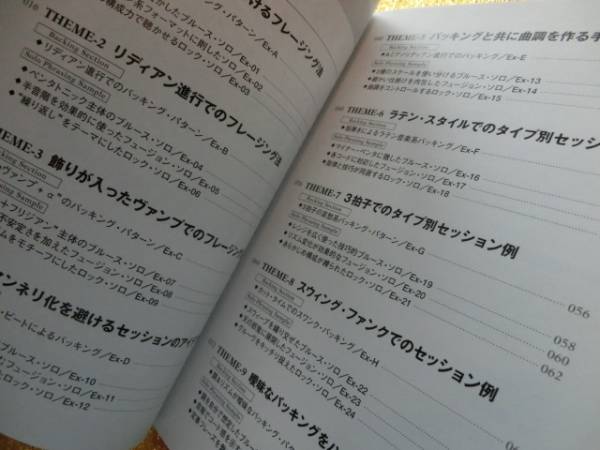 けるフレージング法
ブルース・ソロ/Ex-01
ソロ/Ex-02
構成力で聴かせるロック・ソロ/Ex-03
018
THEME-2 リディアン進行でのフレージング法
Backing Section
リディアン進行でのバッキング・パターン/Ex-B
Solo Phrasing Sample
ペンタトニック主体のブルース・ソロ/Ex-04
半音階を効果的に使ったフュージョン・ソロ/Ex-05
"繰り返し"をテーマにしたロック・ソロ/Ex-06
THEME-3 飾りが入ったヴァンプでのフレージン
ヴァンプ+αのバッキング・パターン/Ex-C
Phrasing Sample
+フリジアン主体のブルース・ソロ/Ex-07
不安定さを加えたフュージョン・ソロ/Ex-08
ムをモチーフにしたロック・ソロ/Ex-09
マンネリ化を避けるセッションのアイ
ビートによるバッキング/Ex-D
ブルース・ソロ/Ex-10
ュージョン・ソロ/Ex-11
ロック・ソロ/Ex-12
THEME-5 バッキングと共に曲調を作る手
Backing Section
進行でのバッキング/Ex-E
Solo Phrasing Sample
のスケールを使い分けるブルース・ソロ/Ex-13
フュージョン・ソロ/Ex-14
コントロールするロック・ソロ/Ex-15
THEME-6 ラテン・スタイルでのタイプ別セッシ
Backing Section
指弾きによるラテン音楽系バッキング/Ex-F
Solo Phrasing Sample
マイナー・ペンタに徹したブルース・ソロ/Ex-16
各コードに対応したフュージョン・ソロ/Ex-17
ロック・ソロ/Ex-18
THEME-7 3拍子でのタイプ別セッション例
Backing Section
3拍子の変動系バッキング・パターン/Ex-G
Solo Phrasing Sample
ブルース・ソロ/Ex-19
リズム変化が効果的なフュージョン・ソロ/Ex-20
あらかじめ構成が練られたロック・ソロ/Ex-21
THEME-8 スウィング・ファンクでのセッション例
Backing Section
タイムでのスワンク・バッキング/Ex-H
Solo Phrasing Sample
スウィープを織り交ぜたブルース・ソロ/Ex-22
フュージョン・ソロ/Ex-23
グルーブをキッチリ捉えたロック・ソロ/Ex-24
THEME-9 曖昧なバッキングを
Backing Section
リズムが曖昧なバッキング・パタ
Solo Phrasing Sample
056
058
060
062